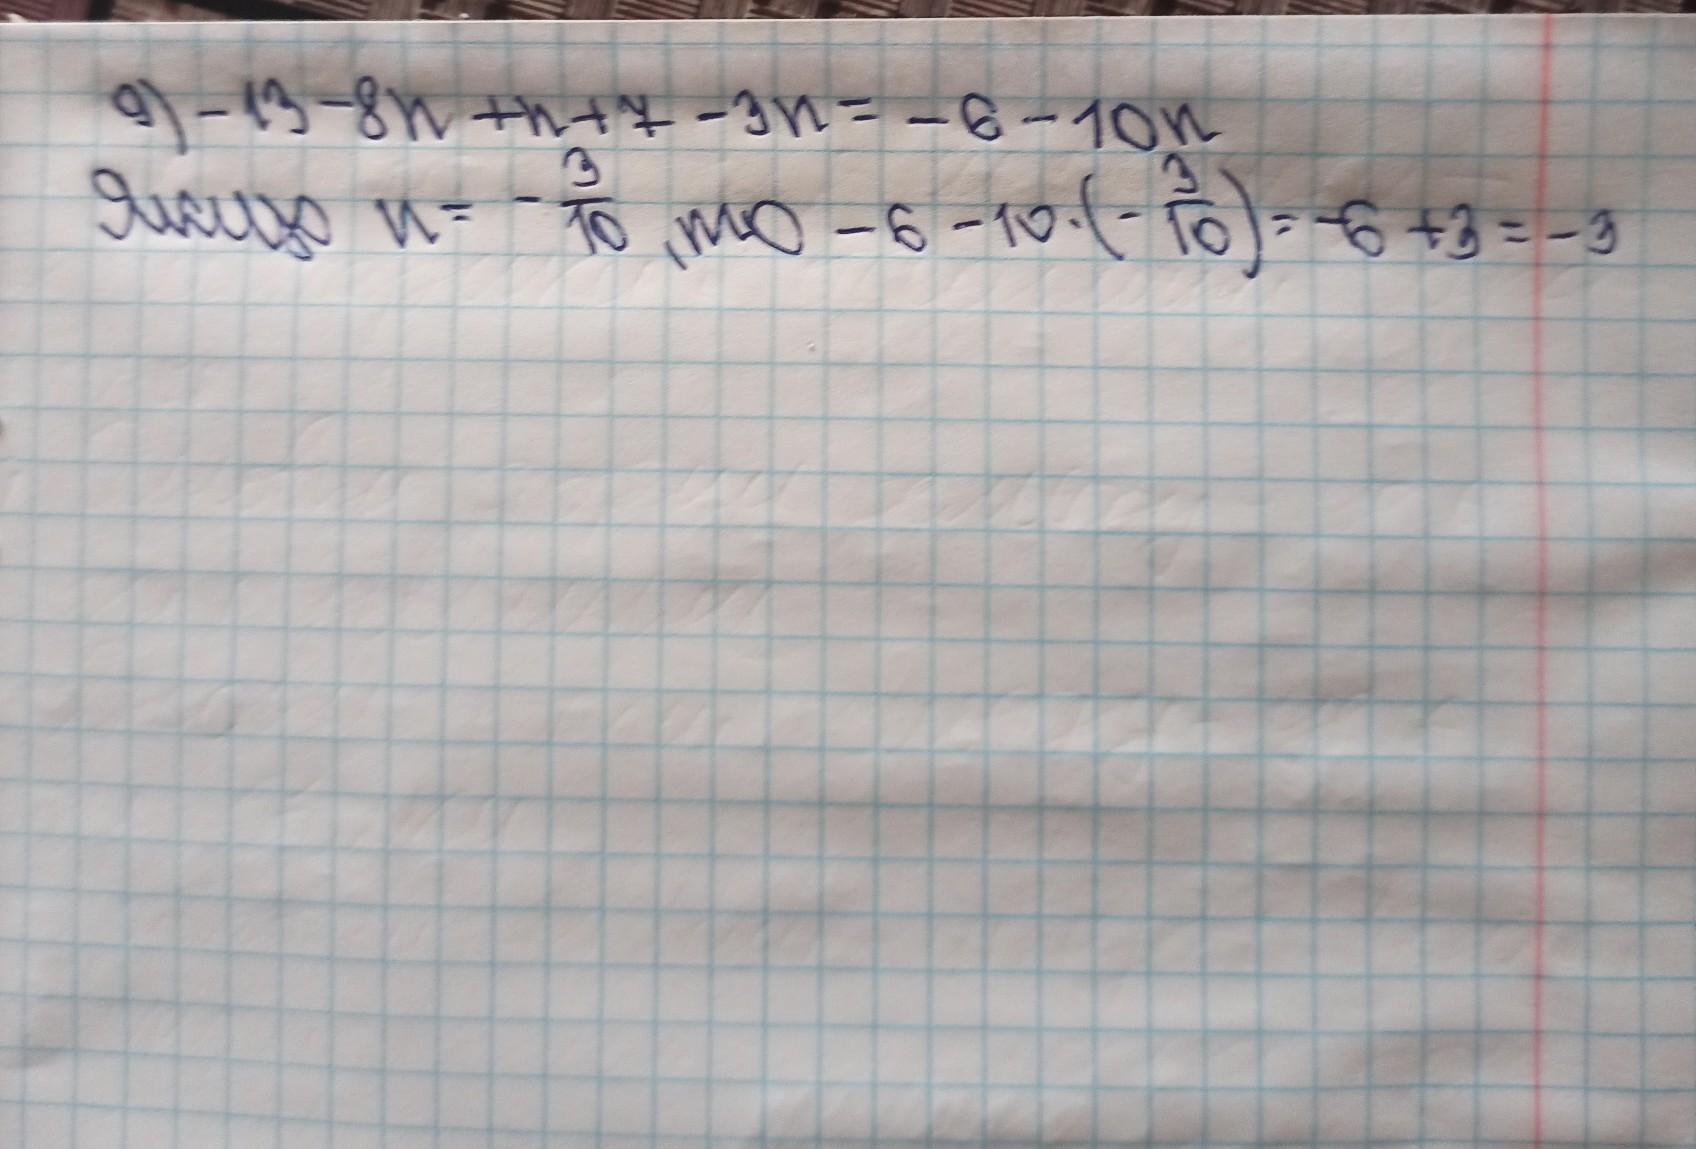 9) -13 -8n +n +7 -3n = -6 -10n
Якщо n = -3/10, то -6 -10·(-3/10) = -6 +3 = -3